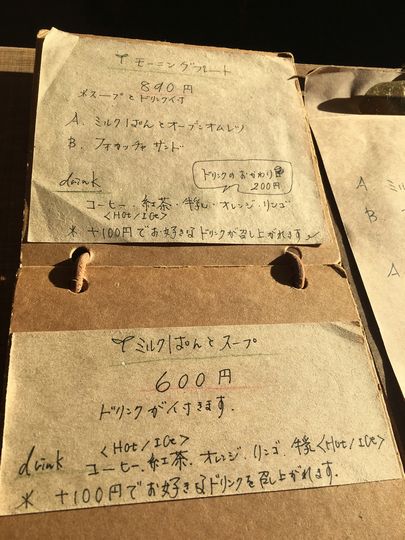 モーニングプレート
890円
*スープとドリンク付
A. ミルクぱんとオープンオムレツ
B. フォカッチャ サンド
ドリンクのおかわり
200円
drink
コーヒー・紅茶・牛乳・オレンジ・リンゴ
<Hot/ICe>
* +100円でお好きなドリンクが召し上がれます。
ミルクぱんとスープ
600円
ドリンクが付きます。
<Hot/ICe>
drink コーヒー・紅茶・オレンジ・リンゴ・牛乳<Hot/ICe>
* +100円でお好きなドリンクを召し上がれます。
A ミル
B フ
A